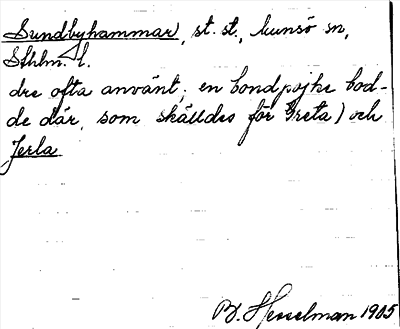 Sundbyhammar, st. st., Munsö sn,
Sthlm. l.
dre ofta använt; en bondpojke bod-
de där, som skälldes för Greta) och
Jerla
B. Hesselman 1905